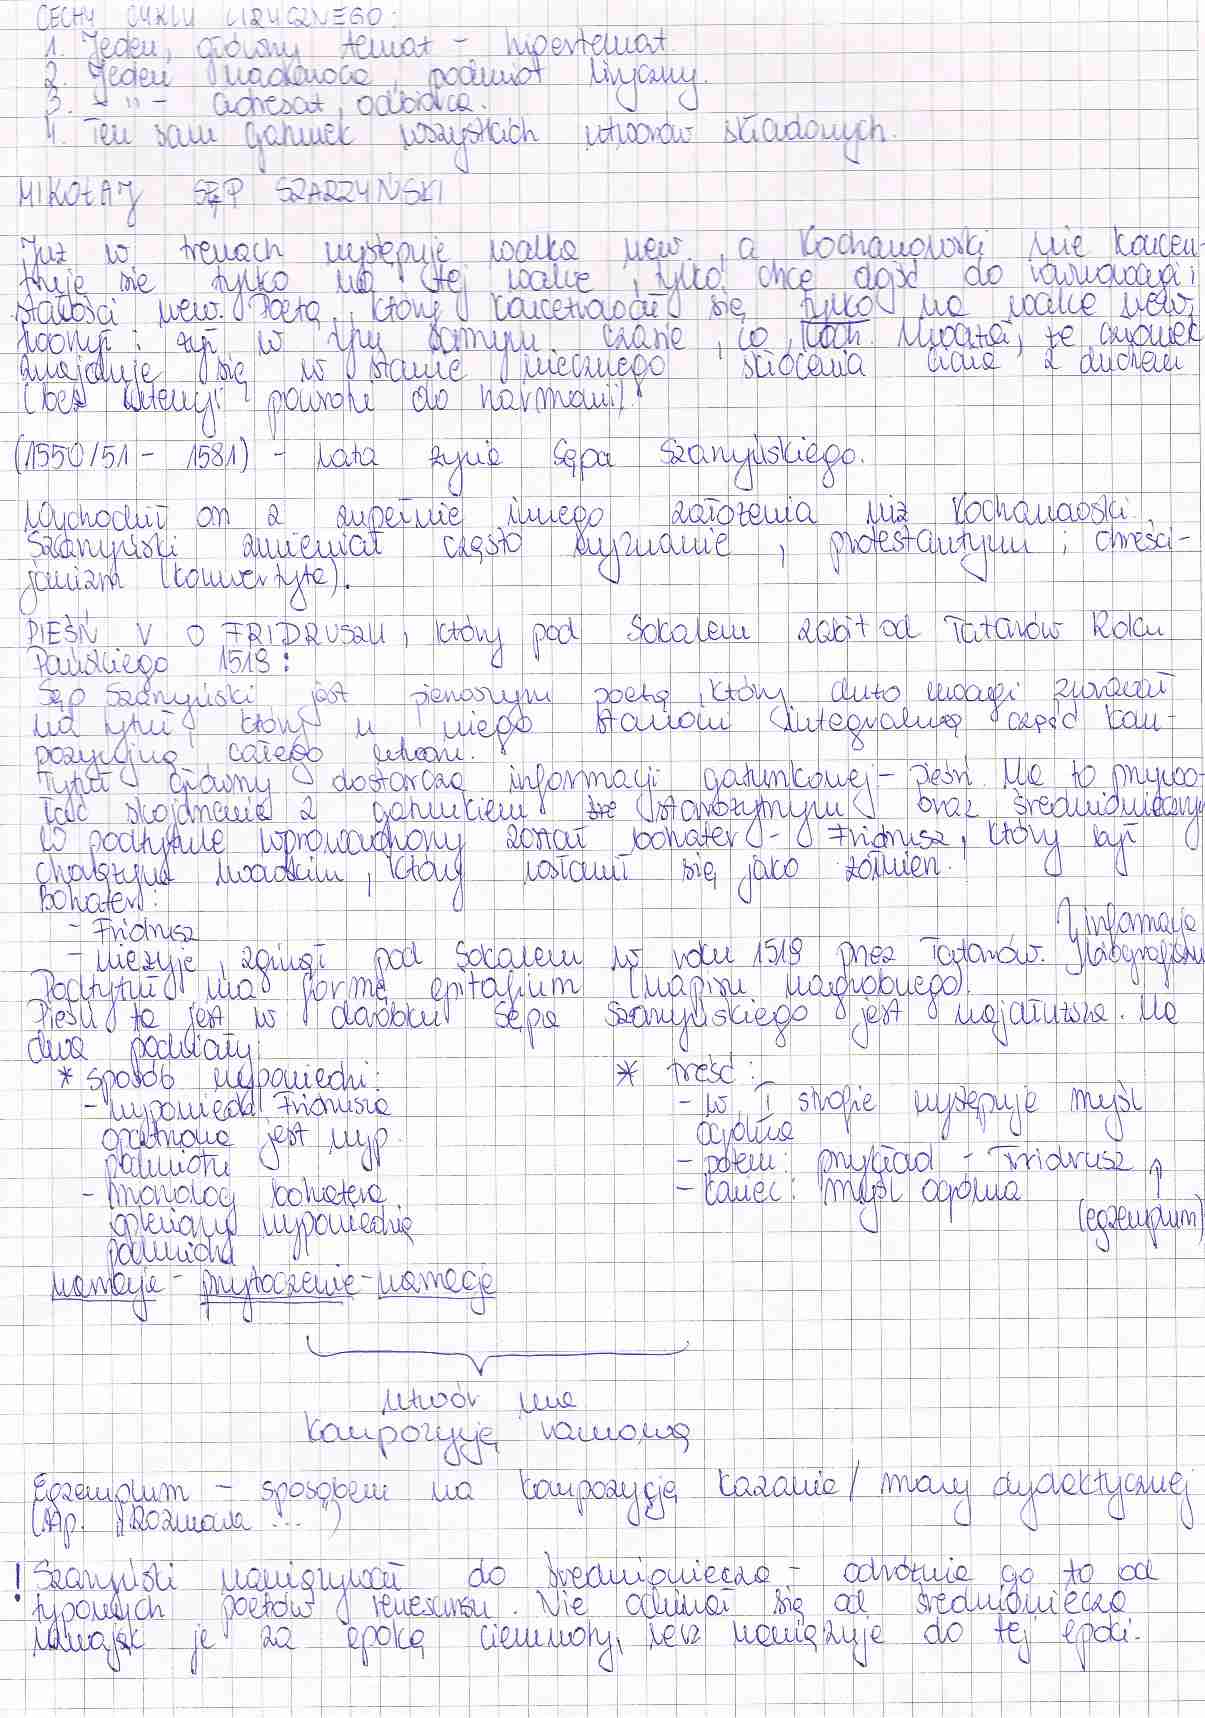 CECHY CYKLU LIRYCZNEGO:
1. Jeden, główny temat - hipertemat.
2. Jeden nadawca, podmiot liryczny.
3. - " - adresat, odbiorca.
4. Ten sam gatunek wszystkich utworów składowych.
MIKOŁAJ SĘP SZARZYŃSKI
Już w trenach występuje walka wew. a Kochanowski nie koncen-
truje się tylko na tej walce, tylko chce dojść do równowagi i
stałości wew. Poeta, który koncentrował się tylko na walce wew.
tworzył i żył w tym samym czasie, co Koch. Uważał, że człowiek
znajduje się w stanie wiecznego skłócenia ciała z duchem
(bez powrotu do harmonii).
(1550/51 - 1581) - lata życia Sępa Szarzyńskiego.
Wychodził on z zupełnie innego założenia niż Kochanowski.
Szarzyński zmieniał często wyznanie, protestantyzm i chrześci-
janizm (konwertyta).
PIEŚŃ V O FRIDRUSZU, który pod Sokalem zabit od Tatarów Roku
Pańskiego 1519:
Sęp Szarzyński jest pierwszym poetą, który dużo uwagi zwracał
na tytuł, który u niego stanowi integralną część kom-
pozycyjną całego utworu.
Tytuł główny dostarcza informacji gatunkowej - pieśń. Ma to przywo-
łać skojarzenie z gatunkiem starożytnym oraz średniowieczny
W podtytule wprowadzony został bohater - Fridrusz, który był
chorążym lwowskim, który wsławił się jako żołnierz.
Bohater:
- Fridrusz
- nie żyje, zginął pod Sokalem w roku 1519 przez Tatarów. } informacje
Podtytuł ma formę epitafium (napisu nagrobnego).
Pieśń ta jest w dorobku Sępa Szarzyńskiego jest najdłuższa. Ma
dwa podziały:
* sposób wypowiedzi:
- wypowiedź Fridrusza
jest wyp.
podmiotu
- monolog bohatera
wypowiedzią
podmiotu
narracja - przytoczenie - narracja
* treść:
- w I strofie występuje myśl
ogólna
- potem: przykład - Fridrusz ↑
- koniec: myśl ogólna
(egzemplum)
utwór ma
kompozycję ramową
Egzemplum - sposobem na kompozycję kazania / mowy dydaktycznej
(Np. "Rozmowa ...")
! Szarzyński nawiązywał do średniowiecza - odróżnia go to od
typowych poetów renesansu. Nie odcinał się od średniowiecza
uważając je za epokę ciemnoty, lecz nawiązuje do tej epoki.